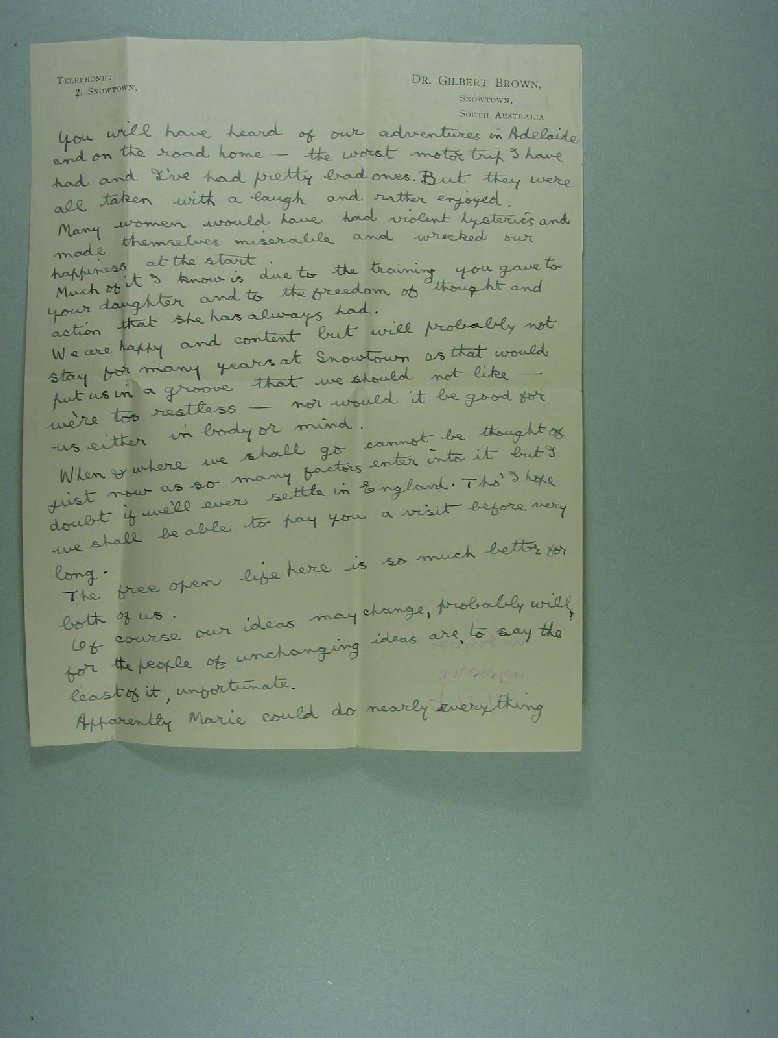 TELEPHONE:
2, SNOWTOWN.
DR. GILBERT BROWN,
SNOWTOWN,
SOUTH AUSTRALIA.
You will have heard of our adventures in Adelaide
and on the road home — the worst motor trip I have
had and I've had pretty bad ones. But they were
all taken with a laugh and rather enjoyed.
Many women would have had violent hysterics and
made themselves miserable and wrecked our
happiness at the start.
Much of it I know is due to the training you gave to
your daughter and to the freedom of thought and
action that she has always had.
We are happy and content but will probably not
stay for many years at Snowtown as that would
put us in a groove that we should not like —
we're too restless — nor would it be good for
us either in body or mind.
When & where we shall go cannot be thought of
just now as so many factors enter into it but I
doubt if we'll ever settle in England. Tho' I hope
we shall be able to pay you a visit before very
long.
The free open life here is so much better for
both of us.
Of course our ideas may change, probably will,
for the people of unchanging ideas are, to say the
least of it, unfortunate.
Apparently Marie could do nearly everything